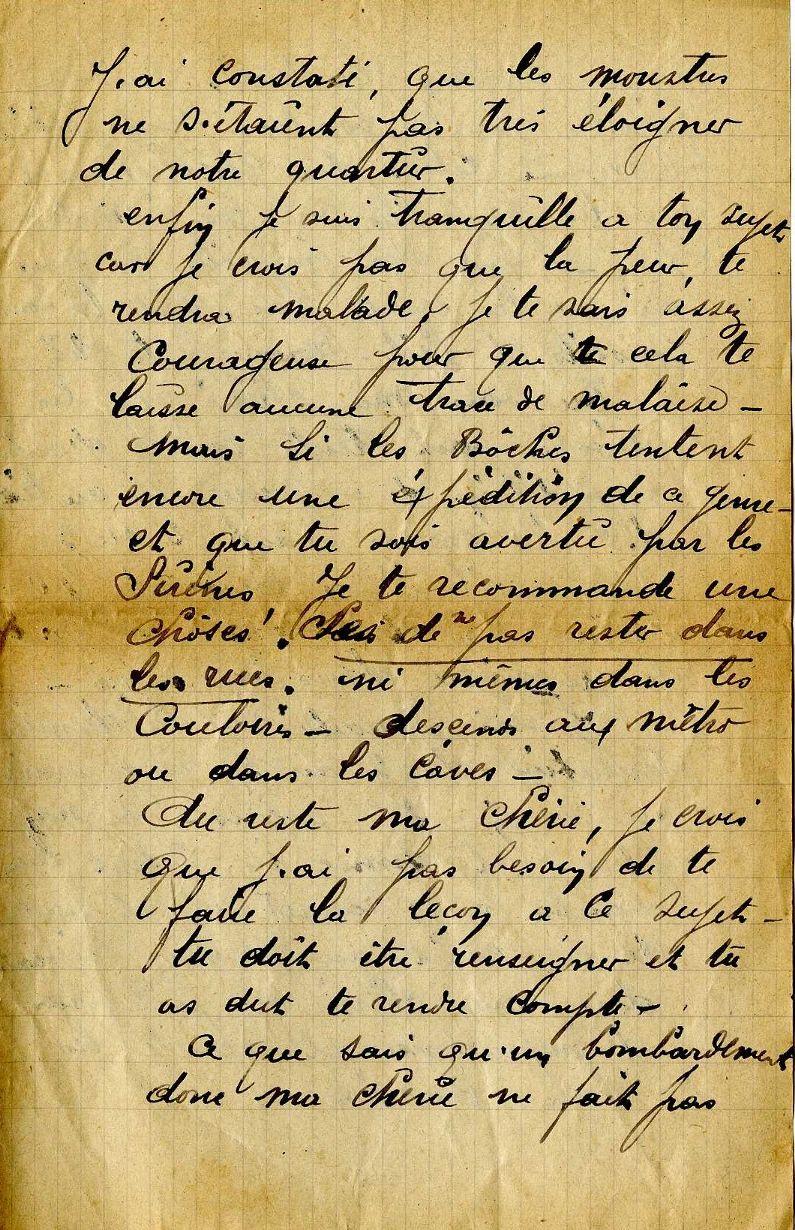 J.ai constaté, que les monstres
ne s'étaient pas très éloigner
de notre quartier.
enfin je suis tranquille a ton sujet
car je crois pas que la peur, te
rendra malade, je te sais assez
Courageuse pour que cela te
laisse aucune trace de malaise –
Mais si les Bôches tentent
encore une éxpédition de ce genre –
et que tu sois avertie par les
Sirènes Je te recommande une
Chôses! de ne pas rester dans
les rues. ni mêmes dans les
Couloirs – descends aux mêtro
ou dans les Câves –
Du reste ma Chérie, je crois
que j.ai pas besoin de te
faire la leçon a ce sujet –
tu doit être renseigner et tu
as dut te rendre compte –
Ce que sais qu'un bombardement
donc ma chérie ne fait pas